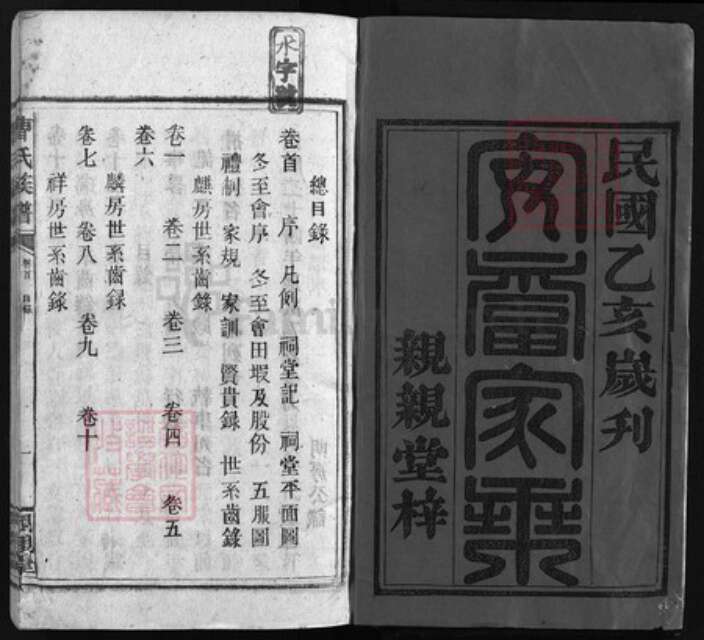 民國乙亥歲刊
安雷家乘
親親堂梓
水字號
總目錄
卷首 序 凡例 祠堂記 祠堂平面圖
冬至會序 冬至會田嘏及股份 五服圖
禮制 家規 家訓 賢貴錄 世系齒錄
卷一 卷二 卷三 卷四 卷五
麒房世系齒錄
卷六
麟房世系齒録
卷七 卷八 卷九 卷十
祥房世系齒錄
曹氏族譜
卷首 目錄
一
親親堂